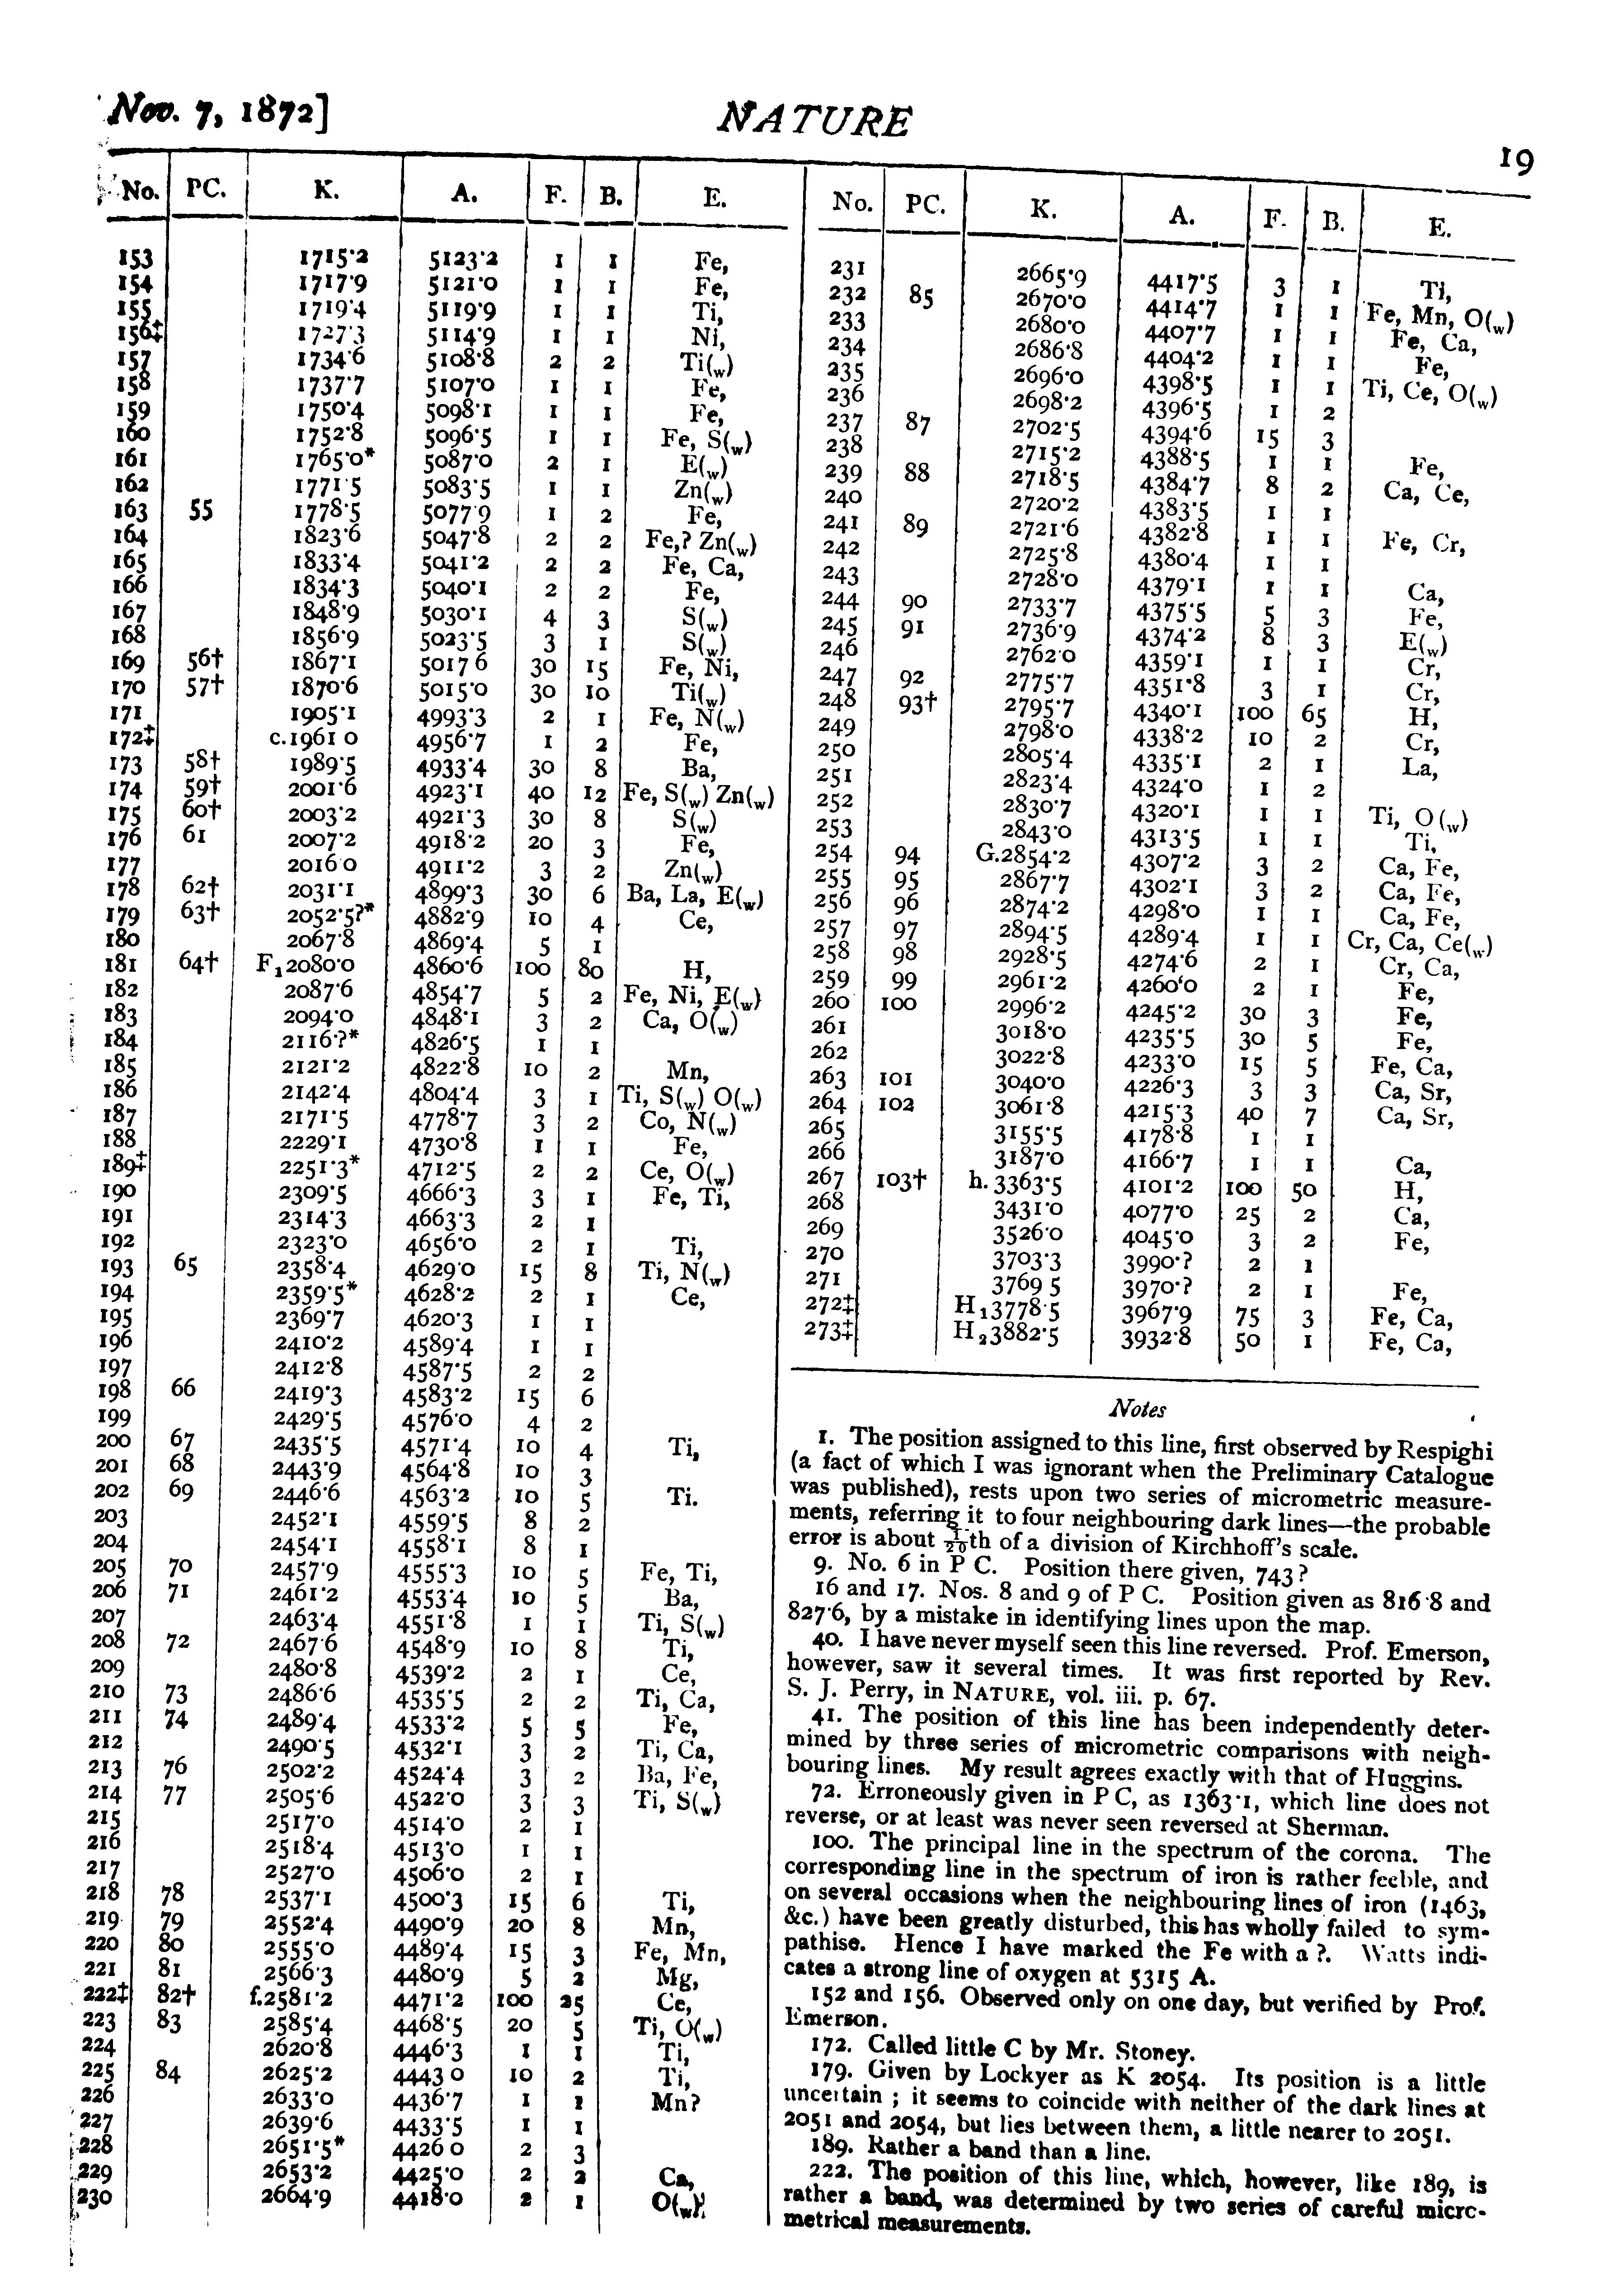 Nov. 7, 1872] NATURE 19
No. PC. K. A. F. B. E.
153 1715·2 5123·2 1 1 Fe,
154 1717·9 5121·0 1 1 Fe,
155 1719·4 5119·9 1 1 Ti,
156‡ 1727·3 5114·9 1 1 Ni,
157 1734·6 5108·8 2 2 Ti(w)
158 1737·7 5107·0 1 1 Fe,
159 1750·4 5098·1 1 1 Fe,
160 1752·8 5096·5 1 1 Fe, S(w)
161 1765·0* 5087·0 2 1 E(w)
162 1771·5 5083·5 1 1 Zn(w)
163 55 1778·5 5077·9 1 2 Fe,
164 1823·6 5047·8 2 2 Fe,? Zn(w)
165 1833·4 5041·2 2 2 Fe, Ca,
166 1834·3 5040·1 2 2 Fe,
167 1848·9 5030·1 4 3 S(w)
168 1856·9 5023·5 3 1 S(w)
169 56† 1867·1 5017 6 30 15 Fe, Ni,
170 57† 1870·6 5015·0 30 10 Ti(w)
171 1905·1 4993·3 2 1 Fe, N(w)
172‡ c.1961 0 4956·7 1 2 Fe,
173 58† 1989·5 4933·4 30 8 Ba,
174 59† 2001·6 4923·1 40 12 Fe, S(w) Zn(w)
175 60† 2003·2 4921·3 30 8 S(w)
176 61 2007·2 4918·2 20 3 Fe,
177 2016 0 4911·2 3 2 Zn(w)
178 62† 2031·1 4899·3 30 6 Ba, La, E(w)
179 63† 2052·5?* 4882·9 10 4 Ce,
180 2067·8 4869·4 5 1
181 64† F,2080·0 4860·6 100 80 H,
182 2087·6 4854·7 5 2 Fe, Ni, E(w)
183 2094·0 4848·1 3 2 Ca, O(w)
184 2116·?* 4826·5 1 1
185 2121·2 4822·8 10 2 Mn,
186 2142·4 4804·4 3 1 Ti, S(w) O(w)
187 2171·5 4778·7 3 2 Co, N(w)
188 2229·1 4730·8 1 1 Fe,
189‡ 2251·3* 4712·5 2 2 Ce, O(w)
190 2309·5 4666·3 3 1 Fe, Ti,
191 2314·3 4663·3 2 1
192 2323·0 4656·0 2 1 Ti,
193 65 2358·4 4629·0 15 8 Ti, N(w)
194 2359·5* 4628·2 2 1 Ce,
195 2369·7 4620·3 1 1
196 2410·2 4589·4 1 1
197 2412·8 4587·5 2 2
198 66 2419·3 4583·2 15 6
199 2429·5 4576·0 4 2
200 67 2435·5 4571·4 10 4 Ti,
201 68 2443·9 4564·8 10 3
202 69 2446·6 4563·2 10 5 Ti.
203 2452·1 4559·5 8 2
204 2454·1 4558·1 8 1
205 70 2457·9 4555·3 10 5 Fe, Ti,
206 71 2461·2 4553·4 10 5 Ba,
207 2463·4 4551·8 1 1 Ti, S(w)
208 72 2467·6 4548·9 10 8 Ti,
209 2480·8 4539·2 2 1 Ce,
210 73 2486·6 4535·5 2 2 Ti, Ca,
211 74 2489·4 4533·2 5 5 Fe,
212 2490·5 4532·1 3 2 Ti, Ca,
213 76 2502·2 4524·4 3 2 Ba, Fe,
214 77 2505·6 4522·0 3 3 Ti, S(w)
215 2517·0 4514·0 2 1
216 2518·4 4513·0 1 1
217 2527·0 4506·0 2 1
218 78 2537·1 4500·3 15 6 Ti,
219 79 2552·4 4490·9 20 8 Mn,
220 80 2555·0 4489·4 15 3 Fe, Mn,
221 81 2566·3 4480·9 5 2 Mg,
222‡ 82† f.2581·2 4471·2 100 25 Ce,
223 83 2585·4 4468·5 20 5 Ti, O(w)
224 2620·8 4446·3 1 1 Ti,
225 84 2625·2 4443 0 10 2 Ti,
226 2633·0 4436·7 1 1 Mn?
227 2639·6 4433·5 1 1
228 2651·5* 4426 0 2 3
229 2653·2 4425·0 2 2 Ca,
230 2664·9 4418·0 2 1 O(w),
No. PC. K. A. F. B. E.
231 2665·9 4417·5 3 1 Ti,
232 85 2670·0 4414·7 1 1 Fe, Mn, O(w)
233 2680·0 4407·7 1 1 Fe, Ca,
234 2686·8 4404·2 1 1 Fe,
235 2696·0 4398·5 1 1 Ti, Ce, O(w)
236 2698·2 4396·5 1 2
237 87 2702·5 4394·6 15 3
238 2715·2 4388·5 1 1 Fe,
239 88 2718·5 4384·7 8 2 Ca, Ce,
240 2720·2 4383·5 1 1
241 89 2721·6 4382·8 1 1 Fe, Cr,
242 2725·8 4380·4 1 1
243 2728·0 4379·1 1 1 Ca,
244 90 2733·7 4375·5 5 3 Fe,
245 91 2736·9 4374·2 8 3 E(w)
246 2762·0 4359·1 1 1 Cr,
247 92 2775·7 4351·8 3 1 Cr,
248 93† 2795·7 4340·1 100 65 H,
249 2798·0 4338·2 10 2 Cr,
250 2805·4 4335·1 2 1 La,
251 2823·4 4324·0 1 2
252 2830·7 4320·1 1 1 Ti, O(w)
253 2843·0 4313·5 1 1 Ti,
254 94 G.2854·2 4307·2 3 2 Ca, Fe,
255 95 2867·7 4302·1 3 2 Ca, Fe,
256 96 2874·2 4298·0 1 1 Ca, Fe,
257 97 2894·5 4289·4 1 1 Cr, Ca, Ce(w)
258 98 2928·5 4274·6 2 1 Cr, Ca,
259 99 2961·2 4260·0 2 1 Fe,
260 100 2996·2 4245·2 30 3 Fe,
261 3018·0 4235·5 30 5 Fe,
262 3022·8 4233·0 15 5 Fe, Ca,
263 101 3040·0 4226·3 3 3 Ca, Sr,
264 102 3061·8 4215·3 40 7 Ca, Sr,
265 3155·5 4178·8 1 1
266 3187·0 4166·7 1 1 Ca,
267 103† h. 3363·5 4101·2 100 50 H,
268 3431·0 4077·0 25 2 Ca,
269 3526·0 4045·0 3 2 Fe,
270 3703·3 3990·? 2 1
271 3769 5 3970·? 2 1 Fe,
272‡ H₁3778·5 3967·9 75 3 Fe, Ca,
273‡ H₂3882·5 3932·8 50 1 Fe, Ca,
Notes
1. The position assigned to this line, first observed by Respighi
(a fact of which I was ignorant when the Preliminary Catalogue
was published), rests upon two series of micrometric measure-
ments, referring it to four neighbouring dark lines—the probable
error is about 1/20th of a division of Kirchhoff's scale.
9. No. 6 in P C. Position there given, 743?
16 and 17. Nos. 8 and 9 of P C. Position given as 816·8 and
827·6, by a mistake in identifying lines upon the map.
40. I have never myself seen this line reversed. Prof. Emerson,
however, saw it several times. It was first reported by Rev.
S. J. Perry, in NATURE, vol. iii. p. 67.
41. The position of this line has been independently deter-
mined by three series of micrometric comparisons with neigh-
bouring lines. My result agrees exactly with that of Huggins.
72. Erroneously given in P C, as 1363·1, which line does not
reverse, or at least was never seen reversed at Sherman.
100. The principal line in the spectrum of the corona. The
corresponding line in the spectrum of iron is rather feeble, and
on several occasions when the neighbouring lines of iron (1463,
&c.) have been greatly disturbed, this has wholly failed to sym-
pathise. Hence I have marked the Fe with a ?. Watts indi-
cates a strong line of oxygen at 5315 A.
152 and 156. Observed only on one day, but verified by Prof.
Emerson.
172. Called little C by Mr. Stoney.
179. Given by Lockyer as K 2054. Its position is a little
uncertain ; it seems to coincide with neither of the dark lines at
2051 and 2054, but lies between them, a little nearer to 2051.
189. Rather a band than a line.
222. The position of this line, which, however, like 189, is
rather a band, was determined by two series of careful micro-
metrical measurements.